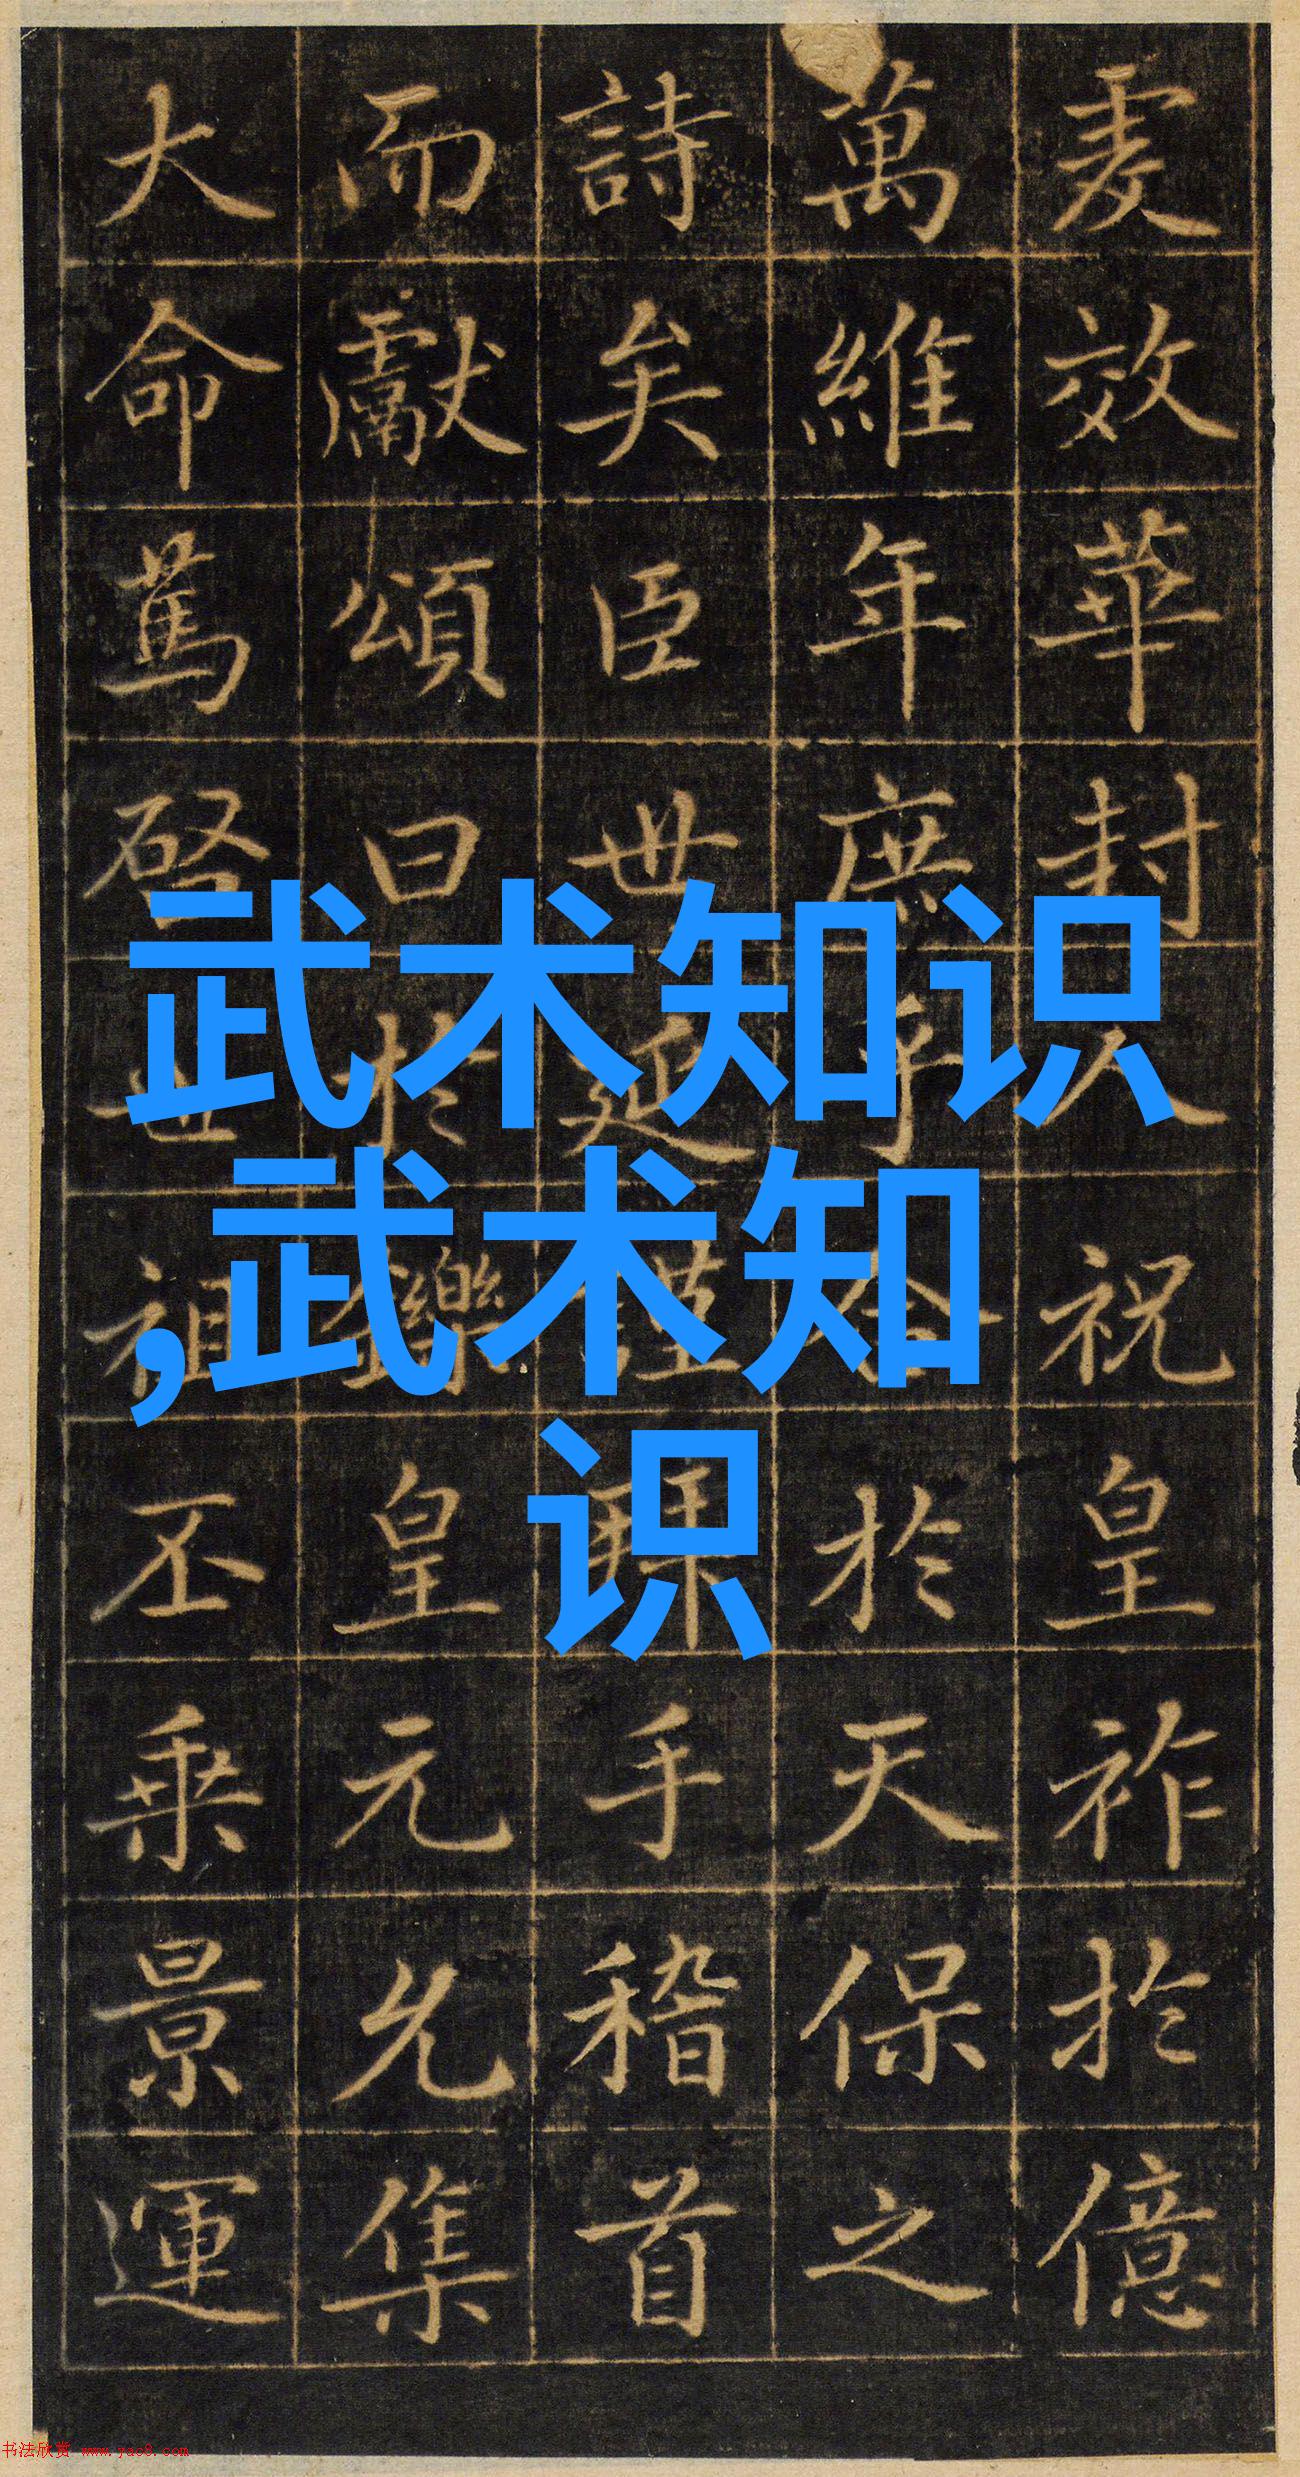 爰效華封人祝皇祚於億
萬維年庶乎合於天保之
詩矣臣世延謹拜手稽首
而獻頌曰於鑠皇元允集
大命篤啓世祖丕乘景運
武术知识
,武术知
识
书法欣赏 www.yac8.com